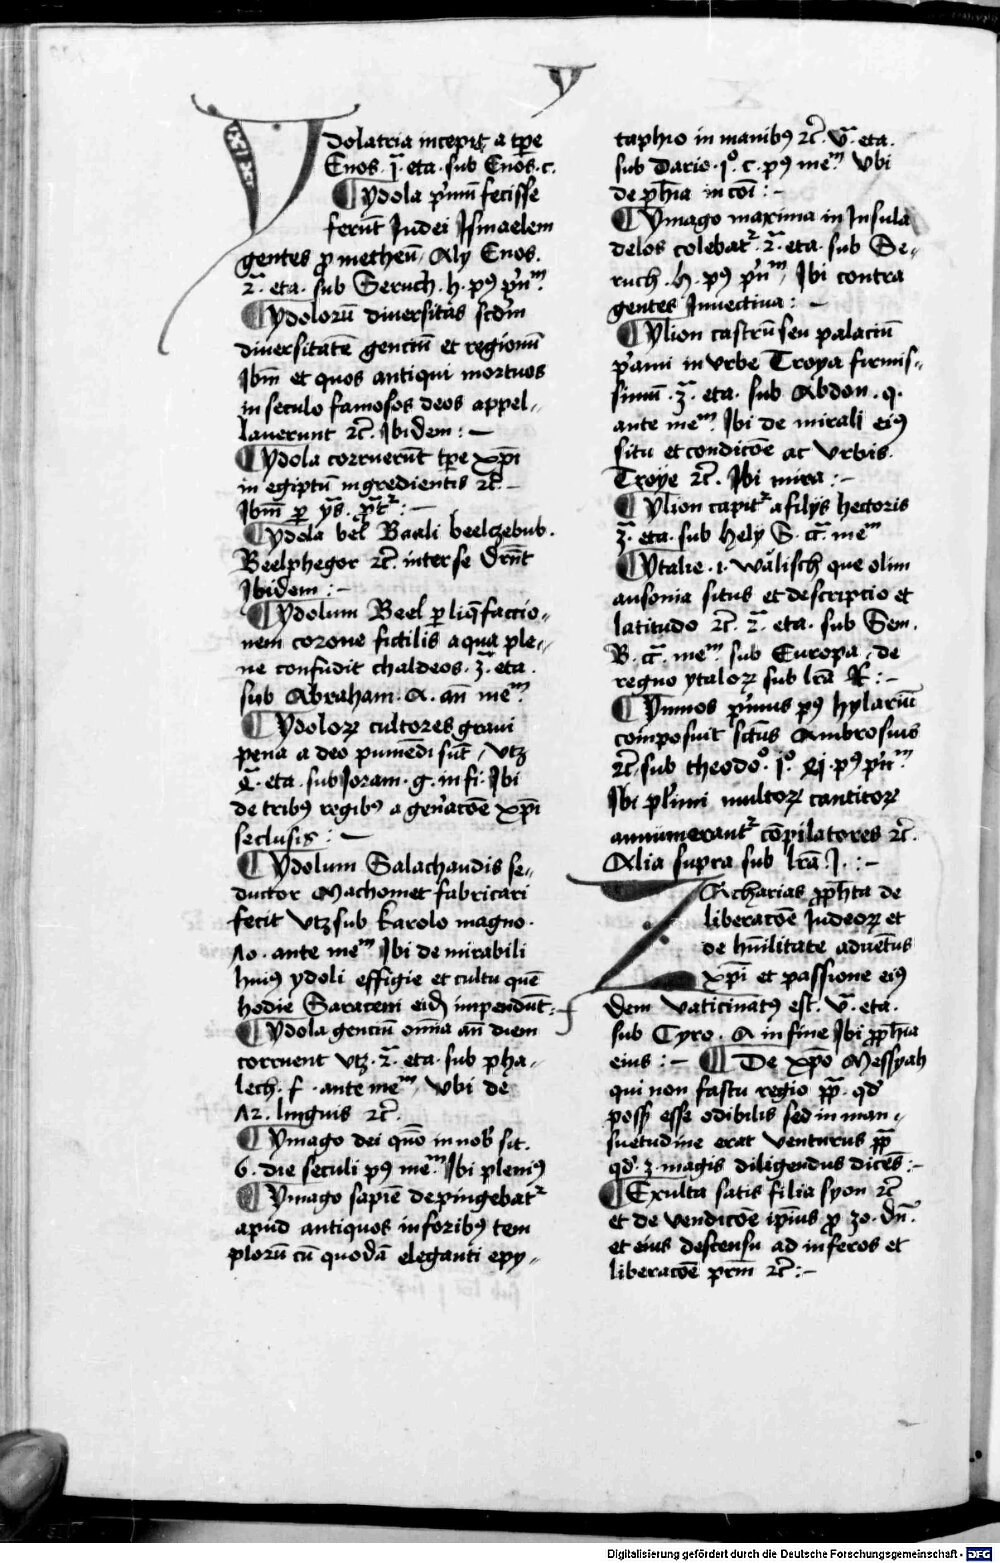 y
Ydolatria incepit a tp̄e
Enos. ī. eta. sub Enos. c.
¶ ydola pͥmū fecisse
ferūt Iudei Ismaelem
gentes ꝓmetheū, Aly Enos.
2ᵃ. eta. sub Seruch. h. pꝰ pͥnᵐ.
¶ ydolorū diuersitas scd̄m
diuersitatē genciū et regionū
Ibm̄ et quos antiqui mortuos
in seculo famosos deos appel„
lauerunt ⁊c̄. Ibidem : —
¶ ydola corruerūt tp̄e xp̄i
in egiptū ingredientis ⁊c̄. —
Ibm̄ ꝑ
¶ ydola bel Baali beelczebub.
Beelphegor ⁊c̄. inter se dr̄nt
Ibidem : —
¶ ydolum Beel ꝑ liq̄faccio„
nem corone fictilis aqua ple„
ne confudit chaldeos. 3ᵃ. eta.
sub Abraham. A. an̄ meᵐ
¶ ydoloꝝ cultores graui
pena a deo puniendi sūt, vtꝫ
4ᵃ. eta. sub Ioram. g. in fi. Ibi
de tribꝰ regibꝰ a gen̄acōe xp̄i
seclusis : —
¶ ydolum Salachaudis se„
ductor Machomet fabricari
fecit vtꝫ sub karolo magno.
10. ante meᵐ Ibi de mirabili
huiꝰ ydoli effigie et cultu quē
hodie Saraceni eid̄ impendūt :
¶ ydola genciū om̄ia an̄ diem
corruent vtꝫ. 2ᵃ. eta. sub pha„
lech. f. ante meᵐ, vbi de
12. linguis ⁊c̄.
¶ ymago dei quō in nob̄ sit.
6. die seculi pꝰ meᵐ. Ibi pleniꝰ
¶ ymago sapiē depingebatᵘʳ
apud antiquos in foribꝰ tem
plorū cū quodā eleganti epy„
taphio in manibꝰ ⁊c̄. vᵃ. eta.
sub Dario. Iᵒ. c. pꝰ meᵐ vbi
de ꝓph̄ia in cōi : —
¶ ymago maxima in Insula
delos colebatᵘʳ. 2ᵃ. eta. sub Se„
ruch. h. pꝰ pͥnᵐ, Ibi contra
gentes Inuectiua : —
¶ ylion castrū seu palaciū
pͥami in vrbe Troya firmis„
simū. 3ᵃ. eta. sub Abdon. q.
ante meᵐ. Ibi de mirali eiꝰ
situ et condicōe ac vrbis.
Troye ⁊c̄. Ibi mira : —
¶ ylion capitᵘʳ a filijs hectoris
3ᵃ. eta. sub hely S. cͣ. meᵐ
¶ ytalie. i. walisch que olim
ausonia situs et descriptio et
latitudo ⁊c̄. 2ᵃ. eta. sub Sem.
B. cͣ. meᵐ. sub Europa, de
regno ytaloꝝ sub lr̄a R : —
¶ ymnos pͥmus pꝰ hylariū
composuit sctūs Ambrosius
⁊c̄. sub theodoᵒ. Iᵒ. pꝰ pͥnᵐ
Ibi pl̄imi multoꝝ canticoꝝ
annumerantᵘʳ cōpilatores ⁊c̄.
Alia supra sub lr̄a I. : —
Zacharias ꝓph̄ta de
liberacōe Iudeoꝝ et
de hūilitate aduētus
xp̄i et passione eiꝰ
dem vaticinatꝰ est. vᵃ. eta.
sub Cyro. A in fine Ibi ꝓph̄ia
eius : — ¶ De xp̄o Messyah
qui non fastu regio qd̄
poss̄ esse odibilis sed in man„
suetudine erat venturus
qd̄. 3. magis diligendus dicēs : —
¶ Exulta satis filia syon ⁊c̄
et de vendicōe ip̄ius ꝓ 30. dn̄.
et eius descensu ad inferos et
liberacōe pr̄m ⁊c̄ : —
Digitalisierung gefördert durch die Deutsche Forschungsgemeinschaft - DFG